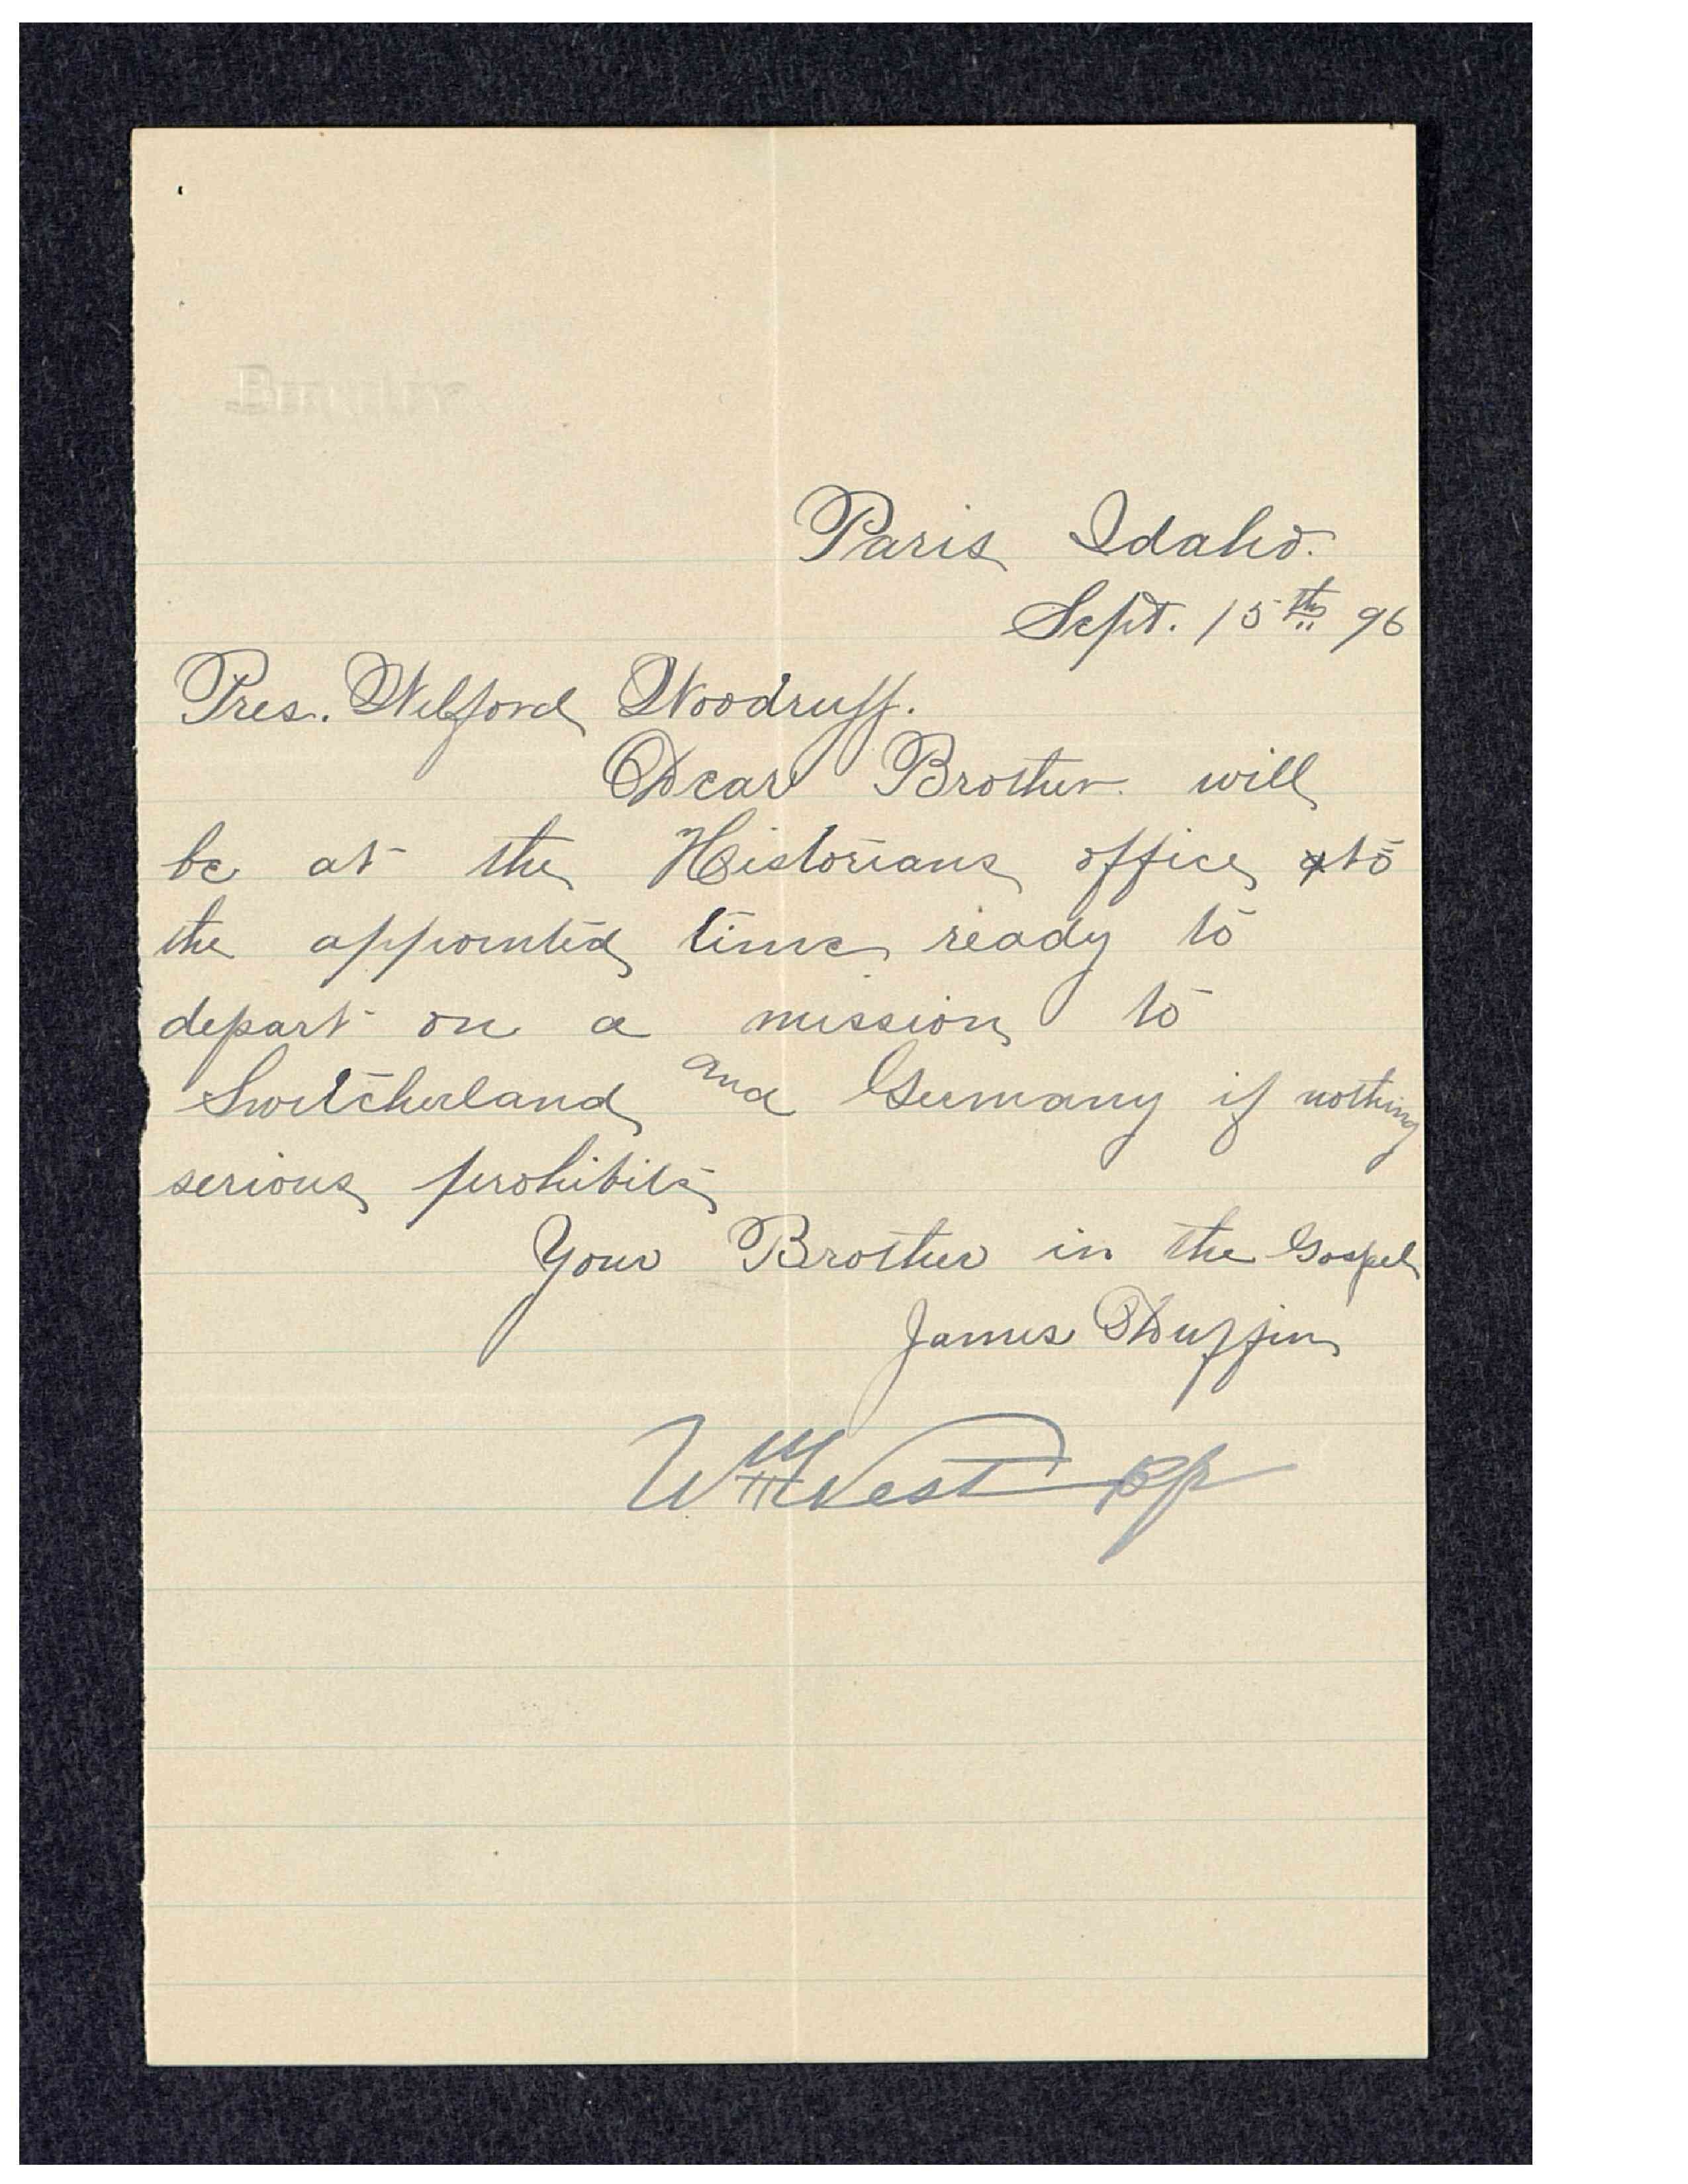 Paris Idaho.
Sept. 15th 96
Pres. Wilford Woodruff.
Dear Brother will
be at the Historians office to
the appointed time ready to
depart on a mission to
Switcherland and Germany if nothing
serious prohibits
Your Brother in the Gospel
James Duffin
Wm West Bp